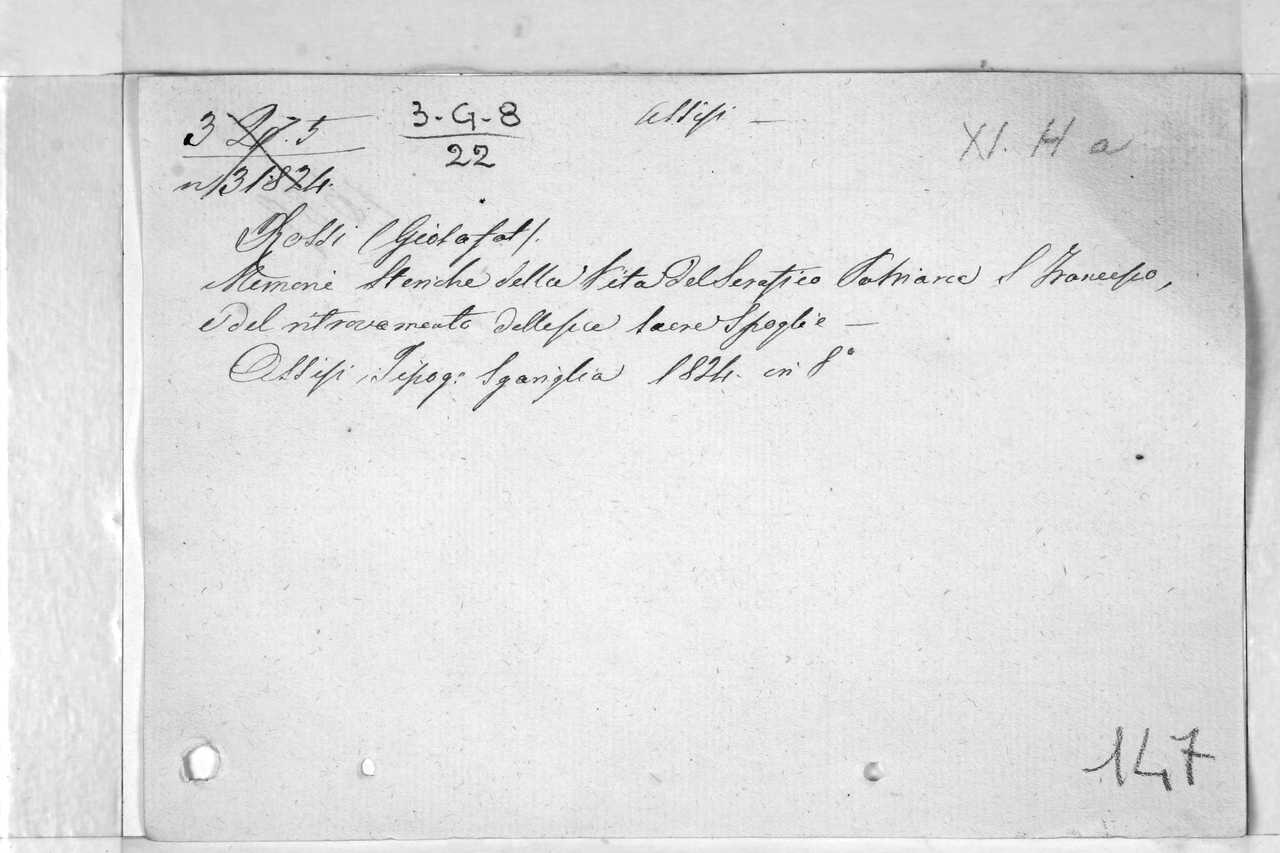 3-G-8 Assisi —
22
XI. H a
n 31824.
Rossi (Giosafat).
Memorie Storiche della Vita del Serafico Patriarca S Francesco,
e del ritrovamento delle sue sacre Spoglie —
Assisi, Tipog: Sgariglia 1824. in 8°
147